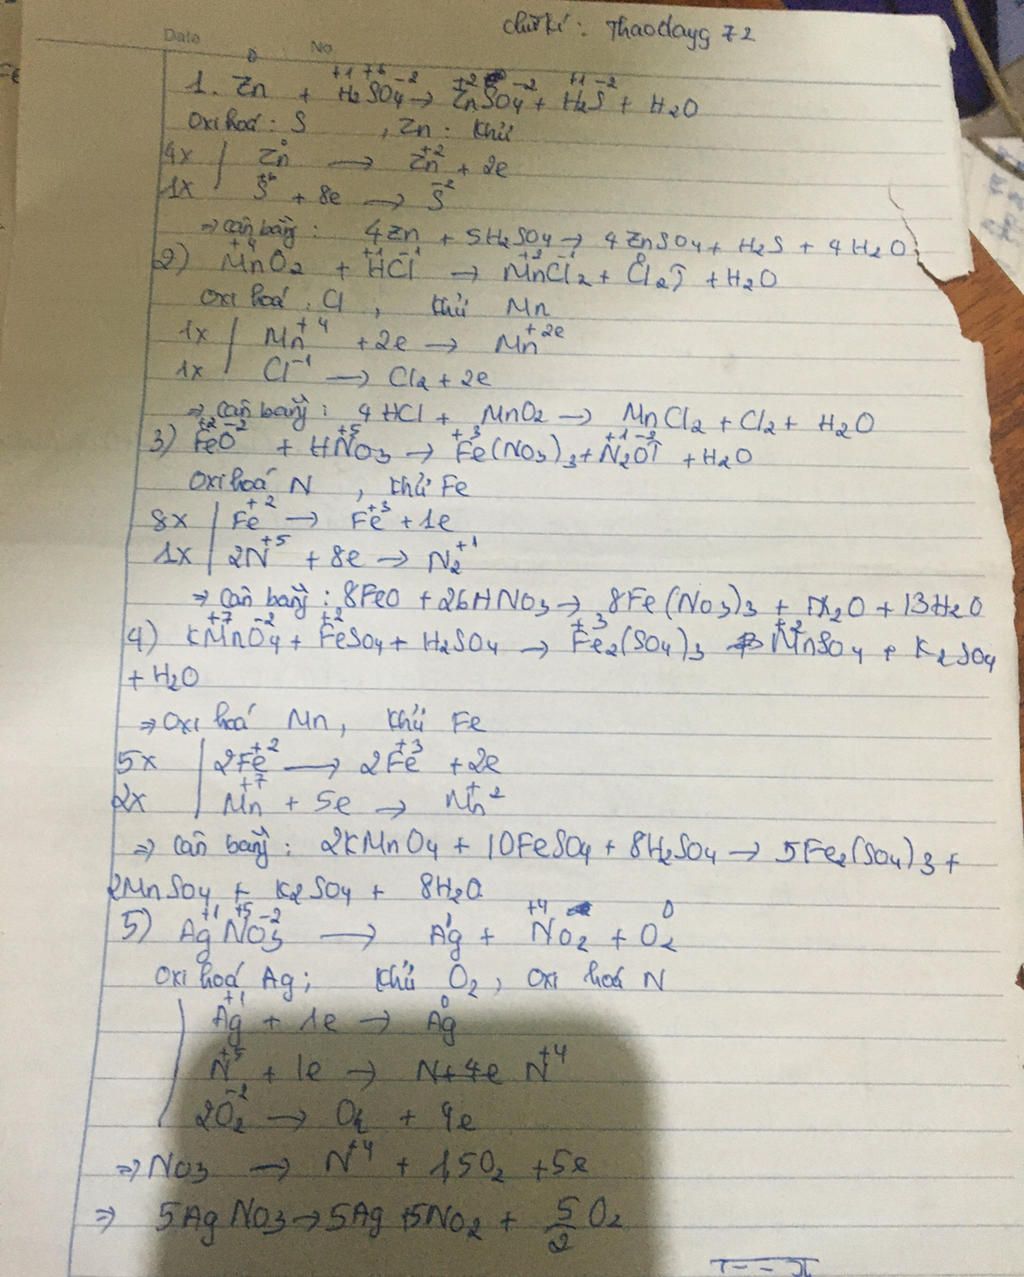 Date No.
chữ kí : Thaodayg 72
1. Zn⁰ + H₂⁺¹S⁺⁶O₄⁻² → Zn⁺²SO₄⁻² + H₂⁺¹S⁻² + H₂O
Oxi hoá : S , Zn : khử
4x | Zn⁰ → Zn⁺² + 2e
1x | S⁺⁶ + 8e → S⁻²
⇒ cân bằng : 4Zn + 5H₂SO₄ → 4ZnSO₄ + H₂S + 4H₂O
2) Mn⁺⁴O₂ + H⁺¹Cl⁻¹ → Mn⁺²Cl₂⁻¹ + Cl₂⁰↑ + H₂O
Oxi hoá : Cl , khử Mn
1x | Mn⁺⁴ + 2e → Mn⁺²ᵉ
1x | Cl⁻¹ → Cl₂ + 2e
⇒ cân bằng : 4HCl + MnO₂ → MnCl₂ + Cl₂ + H₂O
3) Fe⁺²O⁻² + HN⁺⁵O₃ → Fe⁺³(NO₃)₃ + N₂⁺¹O⁻²↑ + H₂O
Oxi hoá N , khử Fe
8x | Fe⁺² → Fe⁺³ + 1e
1x | 2N⁺⁵ + 8e → N₂⁺¹
⇒ cân bằng : 8FeO + 26HNO₃ → 8Fe(NO₃)₃ + N₂O + 13H₂O
4) KMn⁺⁷O₄⁻² + Fe⁺²SO₄ + H₂SO₄ → Fe₂⁺³(SO₄)₃ + Mn⁺²SO₄ + K₂SO₄
+ H₂O
⇒ Oxi hoá Mn, khử Fe
5x | 2Fe⁺² → 2Fe⁺³ + 2e
2x | Mn⁺⁷ + 5e → Mn⁺²
⇒ cân bằng : 2KMnO₄ + 10FeSO₄ + 8H₂SO₄ → 5Fe₂(SO₄)₃ +
2MnSO₄ + K₂SO₄ + 8H₂O
5) Ag⁺¹N⁺⁵O₃⁻² → Ag + N⁺⁴O₂ + O₂⁰
Oxi hoá Ag ; khử O₂, Oxi hoá N
Ag⁺¹ + 1e → Ag⁰
N⁺⁵ + 1e → N+4e N⁺⁴
2O₂⁻² → O₂ + 4e
⇒ NO₃ → N⁺⁴ + 1,5O₂ + 5e
⇒ 5AgNO₃ → 5Ag + 5NO₂ + 5/2 O₂